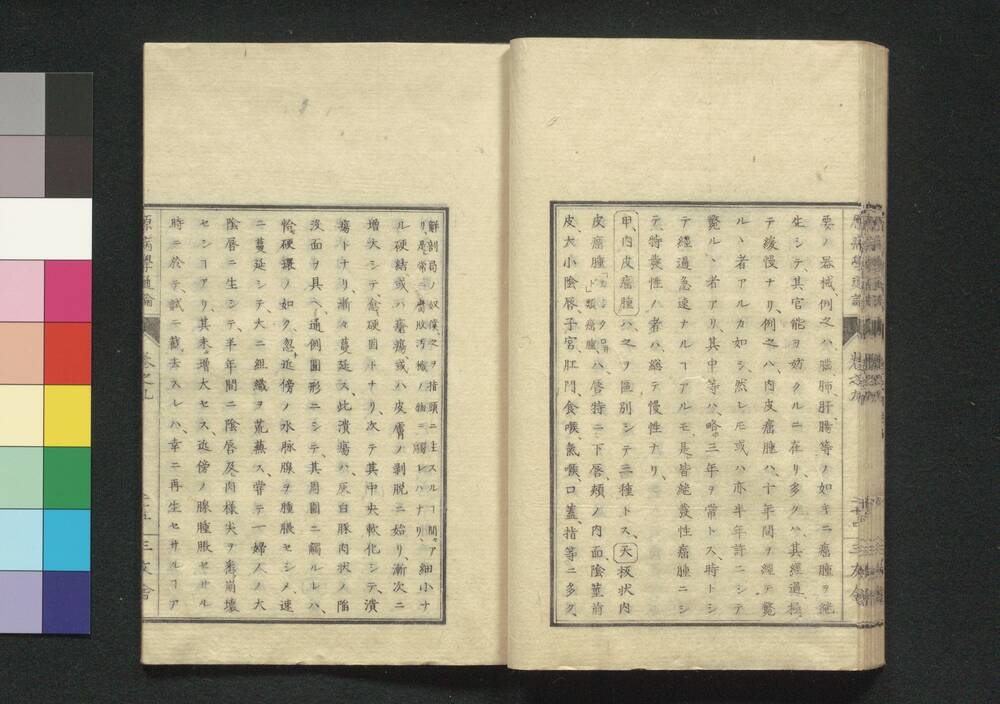 要ノ器械例之ハ、腦、肺、肝、腸等ノ如キニ癌腫ヲ繼
生シテ、其官能ヲ妨クルニ在リ、多クハ其經過極
テ緩慢ナリ、例之ハ内皮癌腫ハ、十年間ヲ經テ斃
ルヽ者アルカ如シ、然レモ或ハ亦半年許ニシテ
斃ルヽ者アリ、其中等ハ略三年ヲ常トス、時トシ
テ經過急速ナルヿアルモ、是皆繼發性癌腫ニシ
テ、特發性ノ者ハ、總テ慢性ナリ、
甲、内皮癌腫ハ、之ヲ區別シテ二種トス、天扱状内
皮癌腫ハ、唇特ニ下唇頬ノ内面陰莖前
皮、大小陰唇、子宮、肛門、食喉、氣喉、口蓋、指等ニ多ク、
原病學通論
三友舍
解剖局ノ奴僕、之ヲ指頭ニ生スルヿ間アリ、是常ニ腐敗汚穢ノ物ニ觸レハナリ、細小ナ
ル硬結或ハ瘡瘍、或ハ皮膚ノ剥脱ニ始リ、漸次ニ
増大シテ、愈硬固トナリ、次テ其中央軟化シテ、潰
瘍トナリ、漸々蔓延ス、此潰瘍ハ、灰白豚肉状ノ陥
没面ヲ具ヘ、通例圓形ニシテ、其周圍ニ觸ルレハ、
恰硬環ノ如ク、忽近傍ノ水脉腺ヲ腫脹セシメ、速
ニ蔓延シテ、大ニ組織ヲ荒蕪ス、嘗テ一婦人ノ大
陰唇ニ生シテ、半年間ニ陰唇及肉様尖ヲ悉崩壊
セシヿアリ、其未増大セス、近傍ノ腺腫脹セサル
時ニ於テ、試ニ截去スレハ、幸ニ再生セサルヿア
原病學通論 卷之九
三友舍